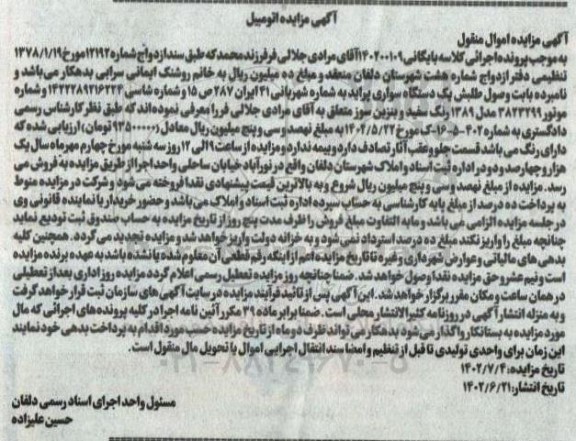 آگهی مزایده اتومبیل
آگهی مزایده اموال منقول
به موجب پرونده اجرائی کلاسه بایگانی ۱۴۰۲۰۰۱۰۹ آقای مرادی جلالی فر فرزند محمد که طبق سند ازدواج شماره ۱۲۱۹۲ مورخ ۱۳۷۸/۱/۱۹
تنظیمی دفتر ازدواج شماره هشت شهرستان دلفان متعقد و مبلغ ده میلیون ریال به خانم روشنک ایمانی سرابی بدهکار می باشد و
نامبرده بابت وصول طلبش یک دستگاه سواری پراید به شماره شهربانی ۴۱ ایران ۲۸۷ ص ۱۵ و شماره شاسی ۱۴۲۲۲۸۹۲۱۶۲۲۴ و شماره
موتور ۳۸۲۳۲۹۹ مدل ۱۳۸۹ رنگ سفید و بنزین سوز متعلق به آقای مرادی جلالی فر را معرفی نموده اند که طبق نظر کارشناس رسمی
دادگستری به شماره ۴۰۲-۵-۱۶-ک مورخ ۱۴۰۲/۵/۲۲ به مبلغ نهصد و سی و پنج میلیون ریال معادل (۹۳۵۰۰۰۰۰ تومان) ارزیابی شده که
دارای رنگ می باشد قسمت جلو و عقب آثار تصادف دارد و بیمه ندارد و مزایده از ساعت ۹ الی ۱۲ روز سه شنبه مورخ چهارم مهرماه سال یک
هزار و چهارصد و دو در اداره ثبت اسناد و املاک شهرستان دلفان واقع در نورآباد خیابان ساحلی واحد اجرا از طریق مزایده به فروش می
رسد. مزایده از مبلغ نهصد و سی و پنج میلیون ریال شروع و به بالاترین قیمت پیشنهادی نقدا فروخته می شود و شرکت در مزایده منوط
به پرداخت ده درصد از مبلغ پایه کارشناسی به حساب سپرده اداره ثبت اسناد و املاک می باشد و حضور خریدار یا نماینده قانونی وی
در جلسه مزایده الزامی می باشد و مابه التفاوت مبلغ فروش را ظرف مدت پنج روز از تاریخ مزایده به حساب صندوق ثبت تودیع نماید
چنانچه مبلغ را واریز نکند مبلغ ده درصد استرداد نمی شود و به خزانه دولت واریز خواهد شد و مزایده تجدید می گردد. همچنین کلیه
بدهی های مالیاتی و عوارض شهرداری و غیره تا تاریخ مزایده اعم از اینکه رقم قطعی آن معلوم شده یا نشده باشد به عهده برنده مزایده
است و نیم عشر و حق مزایده نقدا وصول خواهد شد. ضمنا چنانچه روز مزایده تعطیل رسمی اعلام گردد مزایده روز اداری بعد از تعطیلی
در همان ساعت و مکان مقرر برگزار خواهد شد. این آگهی پس از تائید فرآیند مزایده در سایت آگهی های سازمان ثبت قرار خواهد گرفت
و به منزله انتشار آگهی در روزنامه کثیرالانتشار محلی است. ضمنا برابر ماده ۱۹ مکرر آئین نامه اجرا در کلیه پرونده های اجرائی که مال
مورد مزایده به بستانکار واگذار می شود بدهکار می تواند ظرف دو ماه از تاریخ مزایده حسب مورد اقدام به پرداخت بدهی خود نمایند
این زمان برای واحدی تولیدی تا قبل از تنظیم و امضا سند انتقال اجرایی اموال یا تحویل مال منقول است.
تاریخ مزایده: ۱۴۰۲/۷/۴
تاریخ انتشار: ۱۴۰۲/۶/۲۱
مسئول واحد اجرای اسناد رسمی دلفان
حسین علیزاده